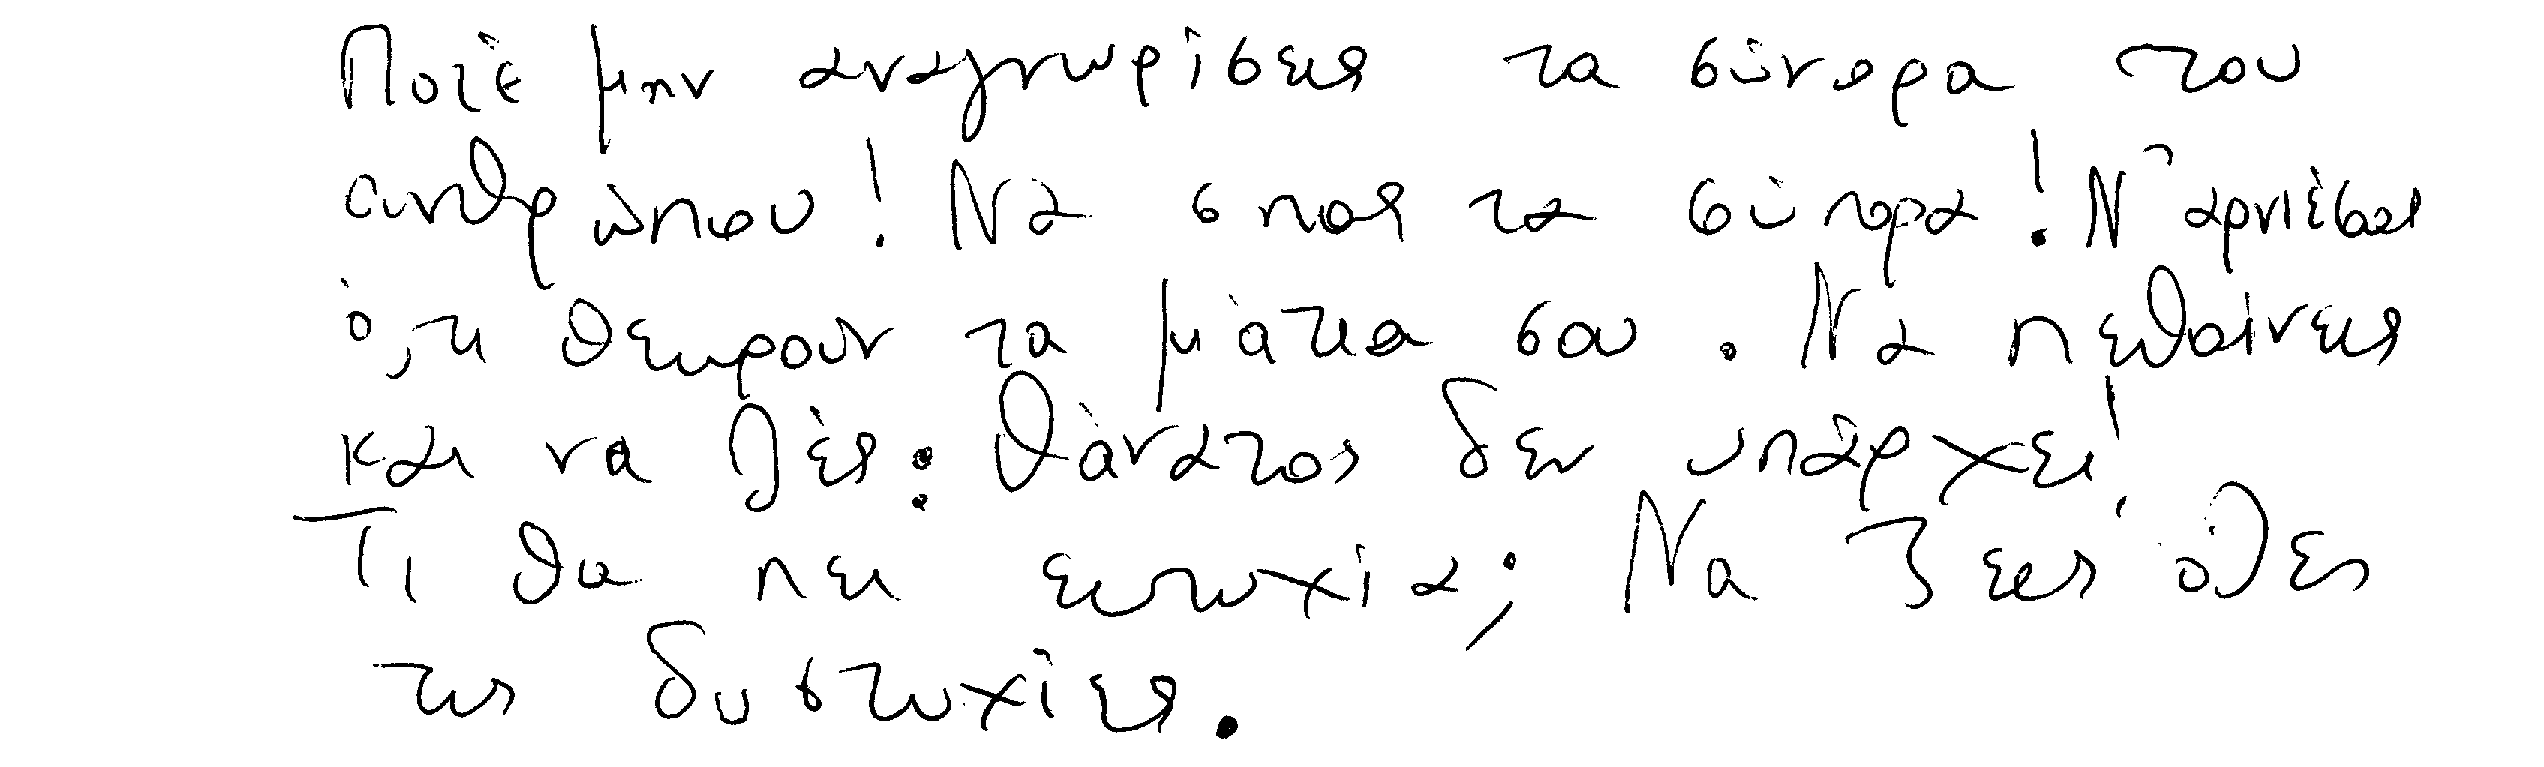 Ποτέ μην αναγνωρίσεις τα σύνορα του
ανθρώπου! Να σπας τα σύνορα! Ν' αρνιέσαι
ό,τι θεωρούν τα μάτια σου. Να πεθαίνεις
και να λές: θάνατος δεν υπάρχει!
Τι θα πει ευτυχία; Να ζεις όλες
τις δυστυχίες.